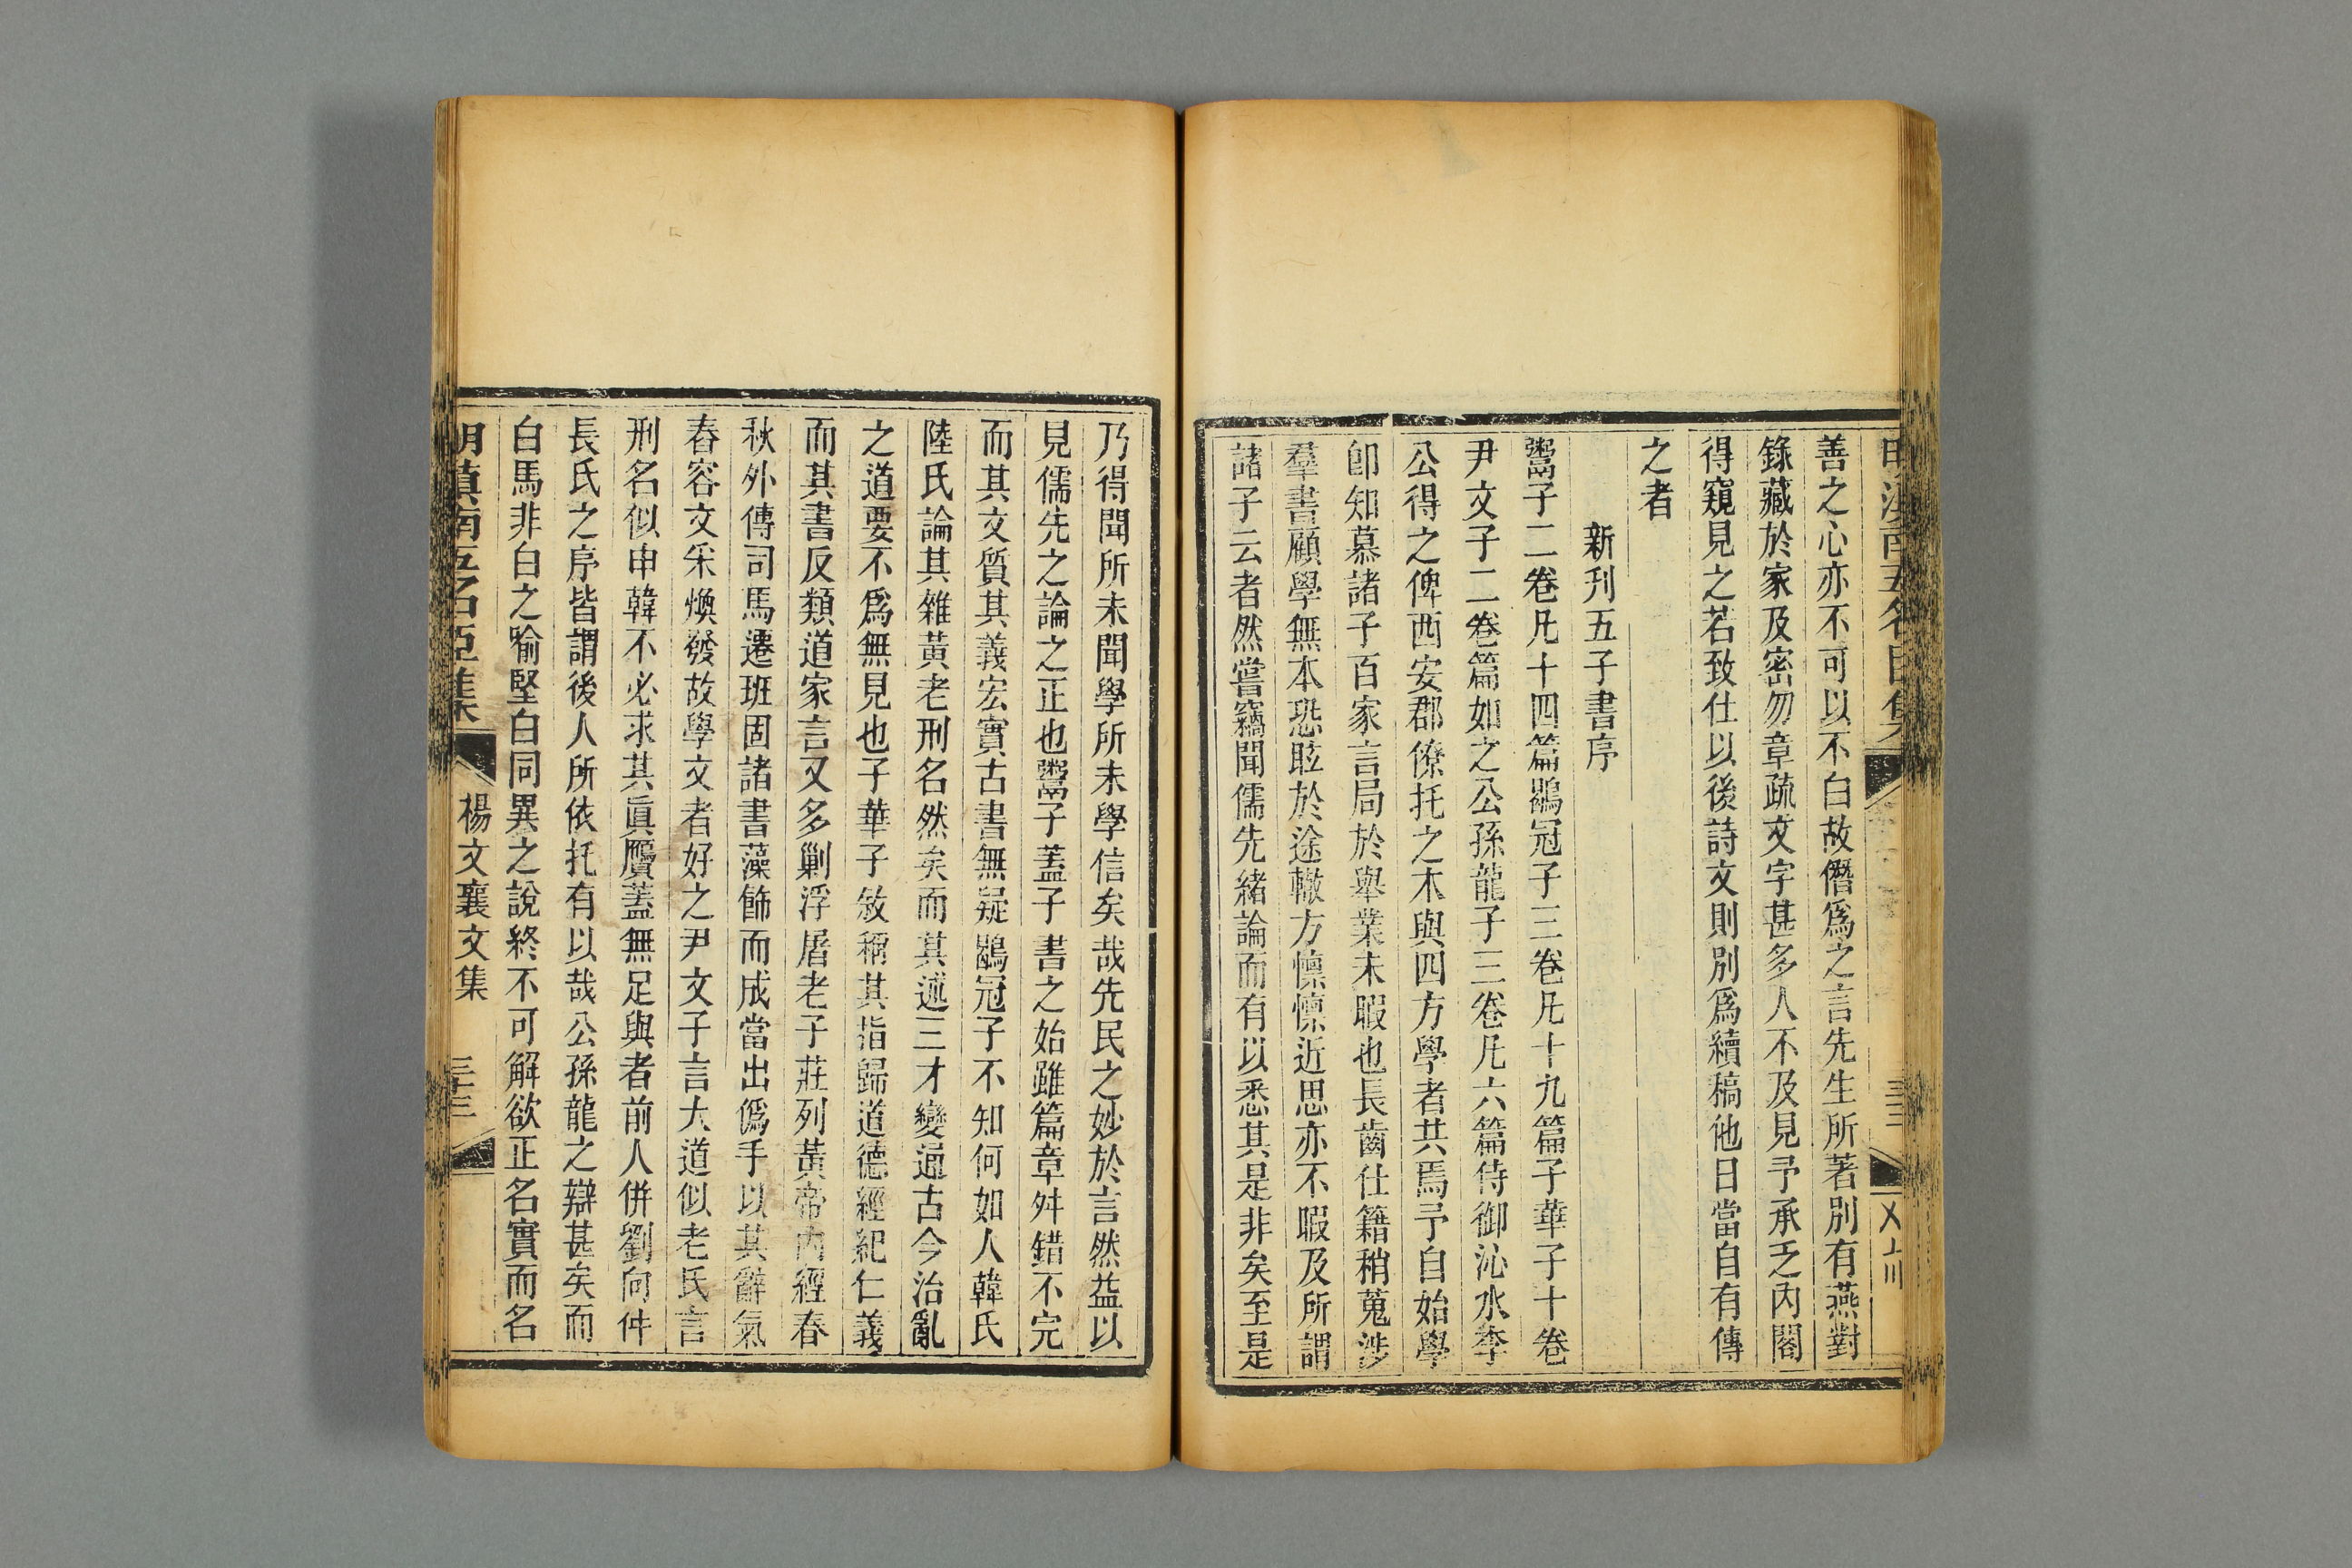 善之心亦不可以不白故僭爲之言先生所著別有燕對
錄藏於家及密勿章疏文字甚多人不及見予承乏內閣
得窺見之若致仕以後詩文則別爲續稿他日當自有傳
之者
新刊五子書序
鬻子二卷凡十四篇鶡冠子三卷凡十九篇子華子十卷
尹文子二卷篇如之公孫龍子三卷凡六篇侍御沁水李
公得之俾西安郡僚托之木與四方學者共焉予自始學
卽知慕諸子百家言局於舉業未暇也長齒仕籍稍蒐涉
羣書顧學無本恐眩於途轍方懔懔近思亦不暇及所謂
諸子云者然嘗竊聞儒先緒論而有以悉其是非矣至是
乃得聞所未聞學所未學信矣哉先民之妙於言然益以
見儒先之論之正也鬻子蓋子書之始雖篇章舛錯不完
而其文質其義宏實古書無疑鶡冠子不知何如人韓氏
陸氏論其雜黃老刑名然矣而其述三才變通古今治亂
之道要不爲無見也子華子敘稱其指歸道德經紀仁義
而其書反類道家言又多剿浮屠老子莊列黃帝內經春
秋外傳司馬遷班固諸書藻飾而成當出僞手以其辭氣
舂容文采煥發故學文者好之尹文子言大道似老氏言
刑名似申韓不必求其眞贋蓋無足與者前人併劉向仲
長氏之序皆謂後人所依托有以哉公孫龍之辯甚矣而
白馬非白之喻堅白同異之說終不可解欲正名實而名
明滇南五名臣集 楊文襄文集 三十三